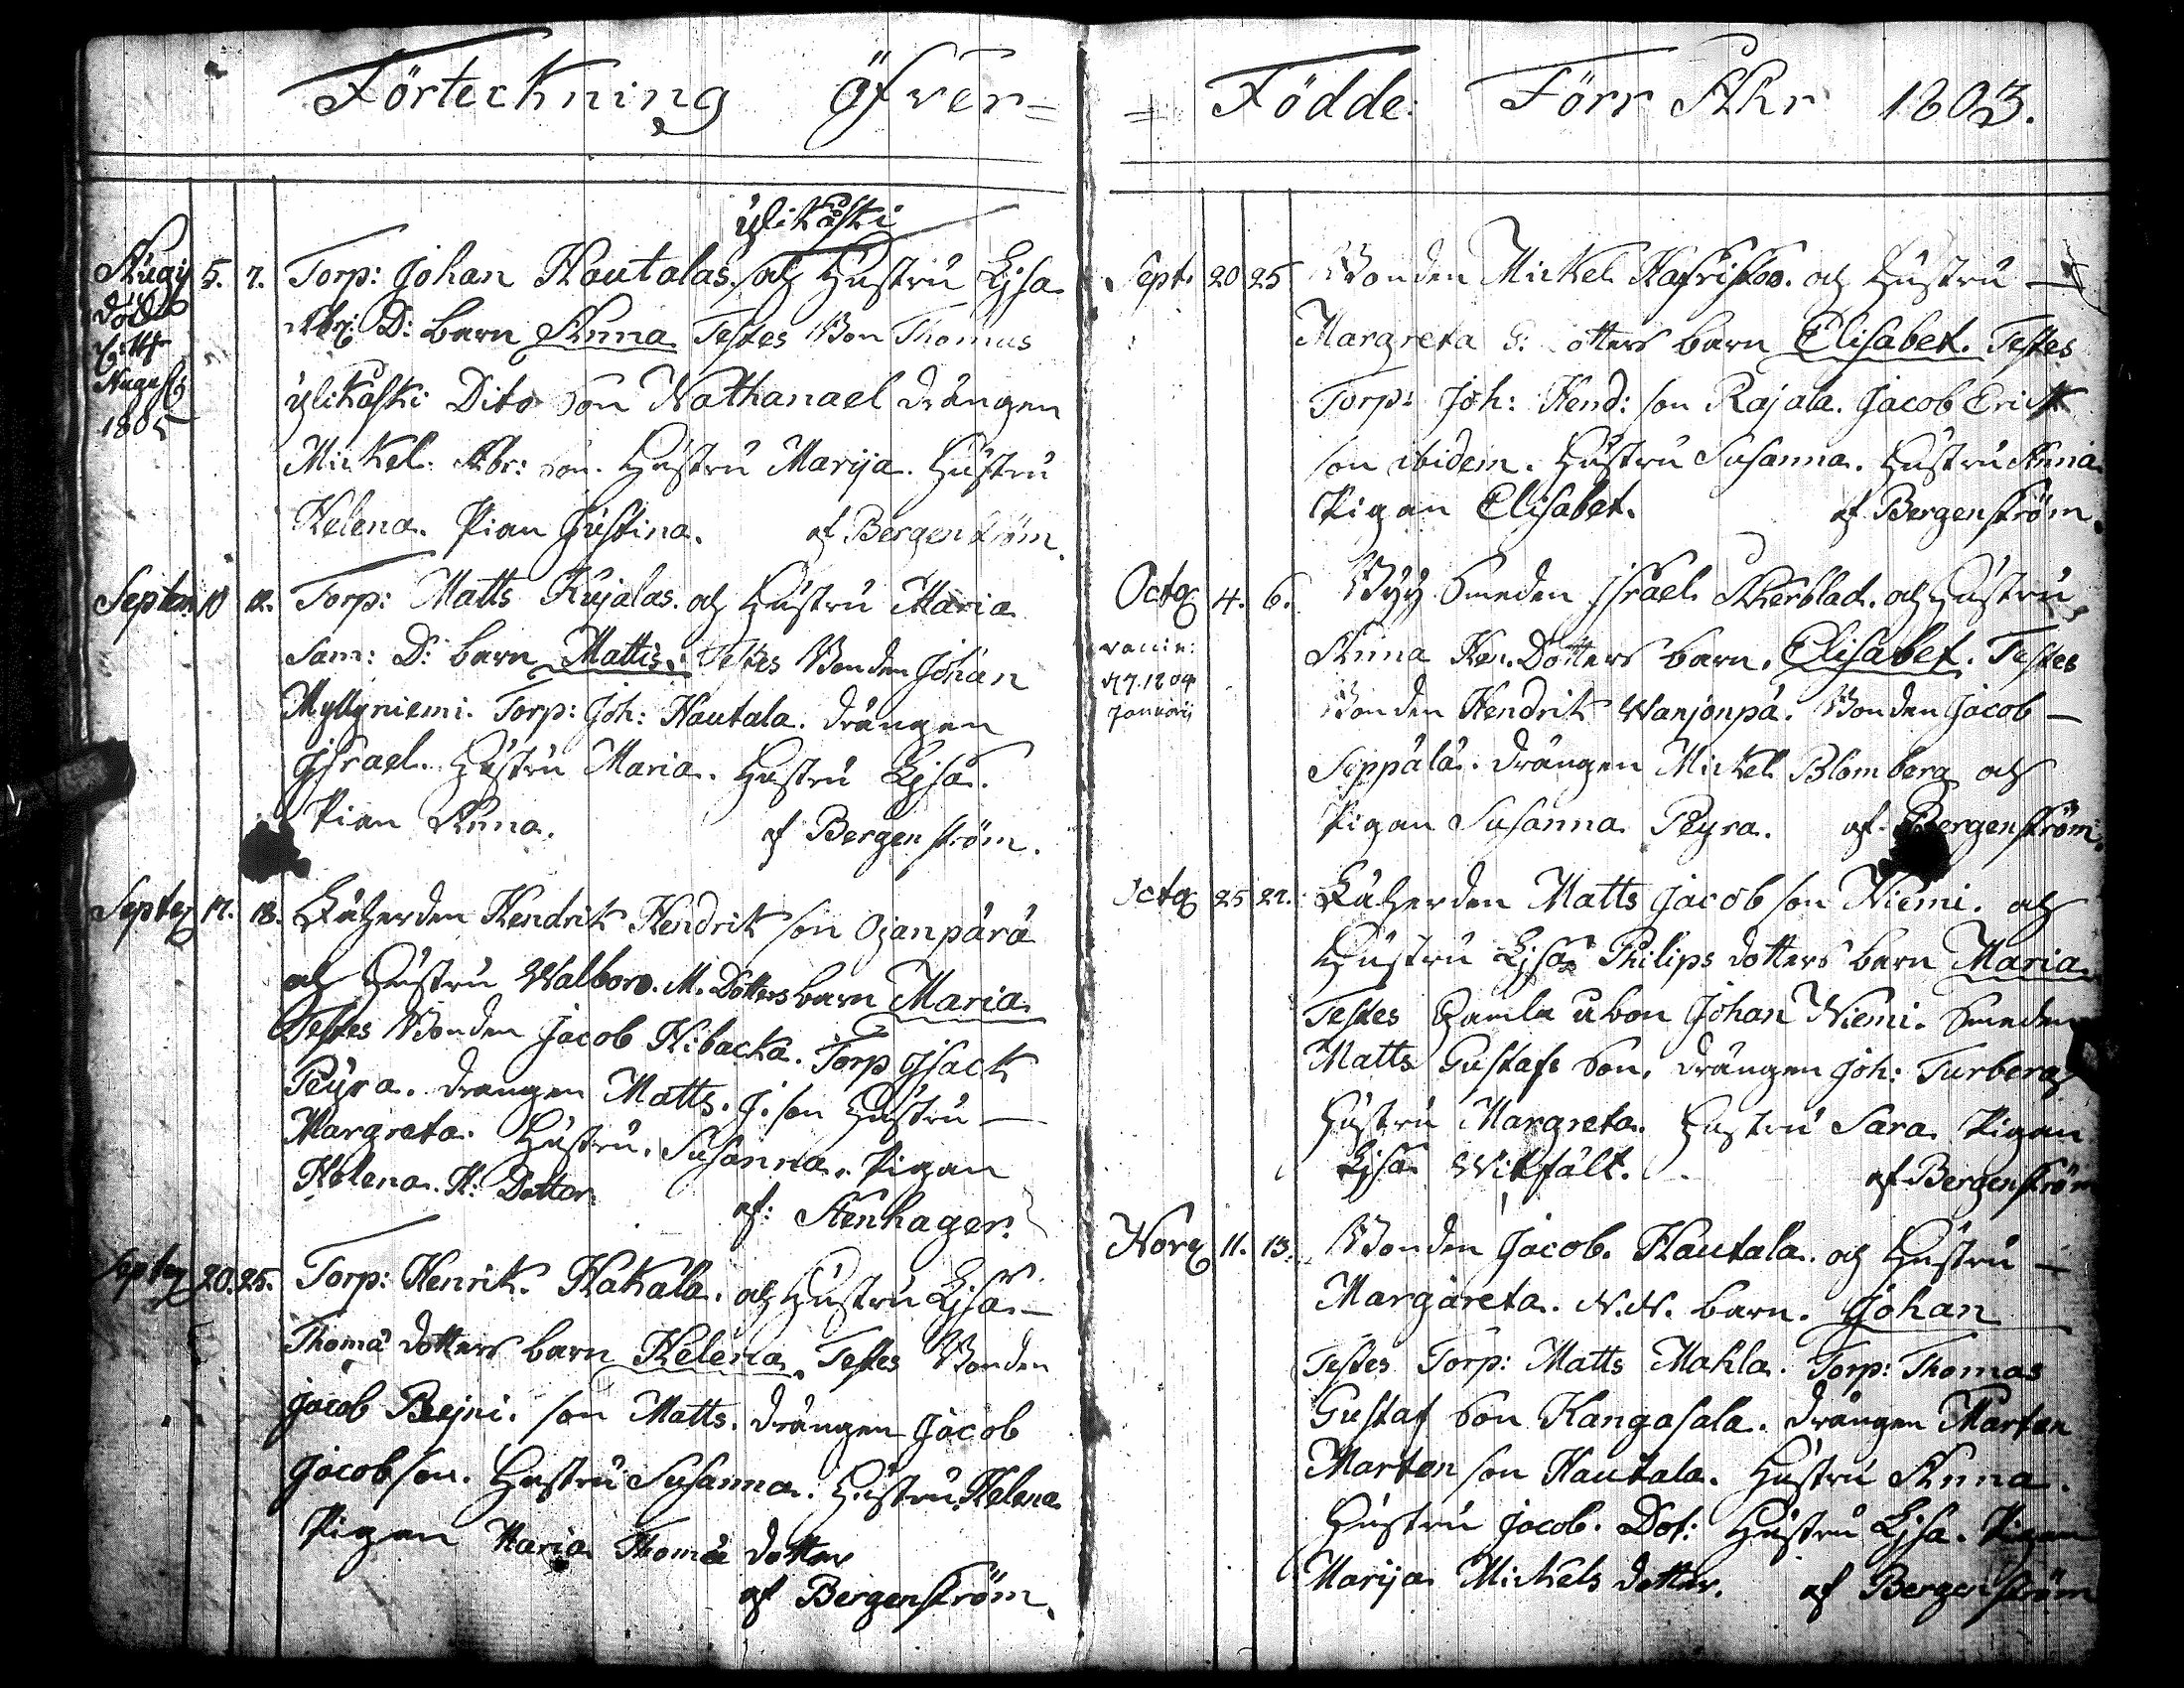 Förteckning öfver=
ÿlikåski
Augij 5. 7. Torp: Johan Hautalas. och Hustru Lisa
död Abr: D: barn Anna Testes Bon Thomas
August ÿlikåski Dito son Nathanael drängen
1805 Mickel Abr: son. Hustru Marija. Hustru
Helena. Pian Justina. af Bergenström.
Septem 10 12. Torp: Matts Kujalas. och Hustru Maria
Sam: D: barn Mattis. Testes Bonden Johan
Myllyniemi. Torp: Joh: Hautala. drängen
Jsrael. Hustru Maria. Hustru Lisa.
Pian Anna. af Bergenström.
Septe 17. 18. Hendrik Hendrik son Ojanpärä
och Hustru Walbor. M. Dotters barn Maria
Testes Bonden Jacob Kibacka. Torp Jsack
Peÿra. drängen Matts. J. son Hustru —
Margreta. Hustru. Susanna. Pigan
Helena. H: Dotter af: Stenhager.
Septe 20. 25. Torp: Henrik. Hakala. och Hustru Lisa. —
Thoma dotters barn Helena. Testes Bonden
Jacob Bejni. son Matts. drängen Jacob
Jacobson. Hustru Susanna. Hustru Helena
Pigan Maria Thoma dotter
af Bergenström.
= Födde: Förr Åhr 1803.
Sept. 20 25 Bonden Mickel och Hustru —
Margreta G: dotters barn Elisabet. Testes
Torp: Joh: Hend: son Rajala. Jacob Erick
son ibidem. Hustru Susanna. Hustru Anna
Pigan Elisabet. af Bergenström.
Octo 4. 6. Smeden Jsrael Åkerblad. och Hustru
vaccin: Anna Hen. Dotters barn. Elisabet. Testes
1804 Bonden Hendrik Wanjonpä. Bonden Jacob —
Januarij
Seppälä. drängen Mickel Blomberg och
Pigan Susanna Peyra. af Bergenström.
Octo 25 27. Matts Jacob son Niemi. och
Hustru Lisa Philips dotters barn Maria
Testes Gamla Johan Niemi. Smeden
Matts Gustafs son. drängen Joh: Turberg
Hustru Margreta. Hustru Sara Pigan
Lisa Wikfält. af Bergenström
Nove 11. 13. Bonden Jacob. Hautala. och Hustru —
Margareta. N. N. barn. Johan
Testes Torp: Matts Mahla. Torp: Thomas
Gustaf son Kangasala. drängen Marten
Marten son Hautala. Hustru Anna.
Hustru Jacob. Dot: Hustru Lisa. Pigan
Marija Mickels dotter. af Bergenström